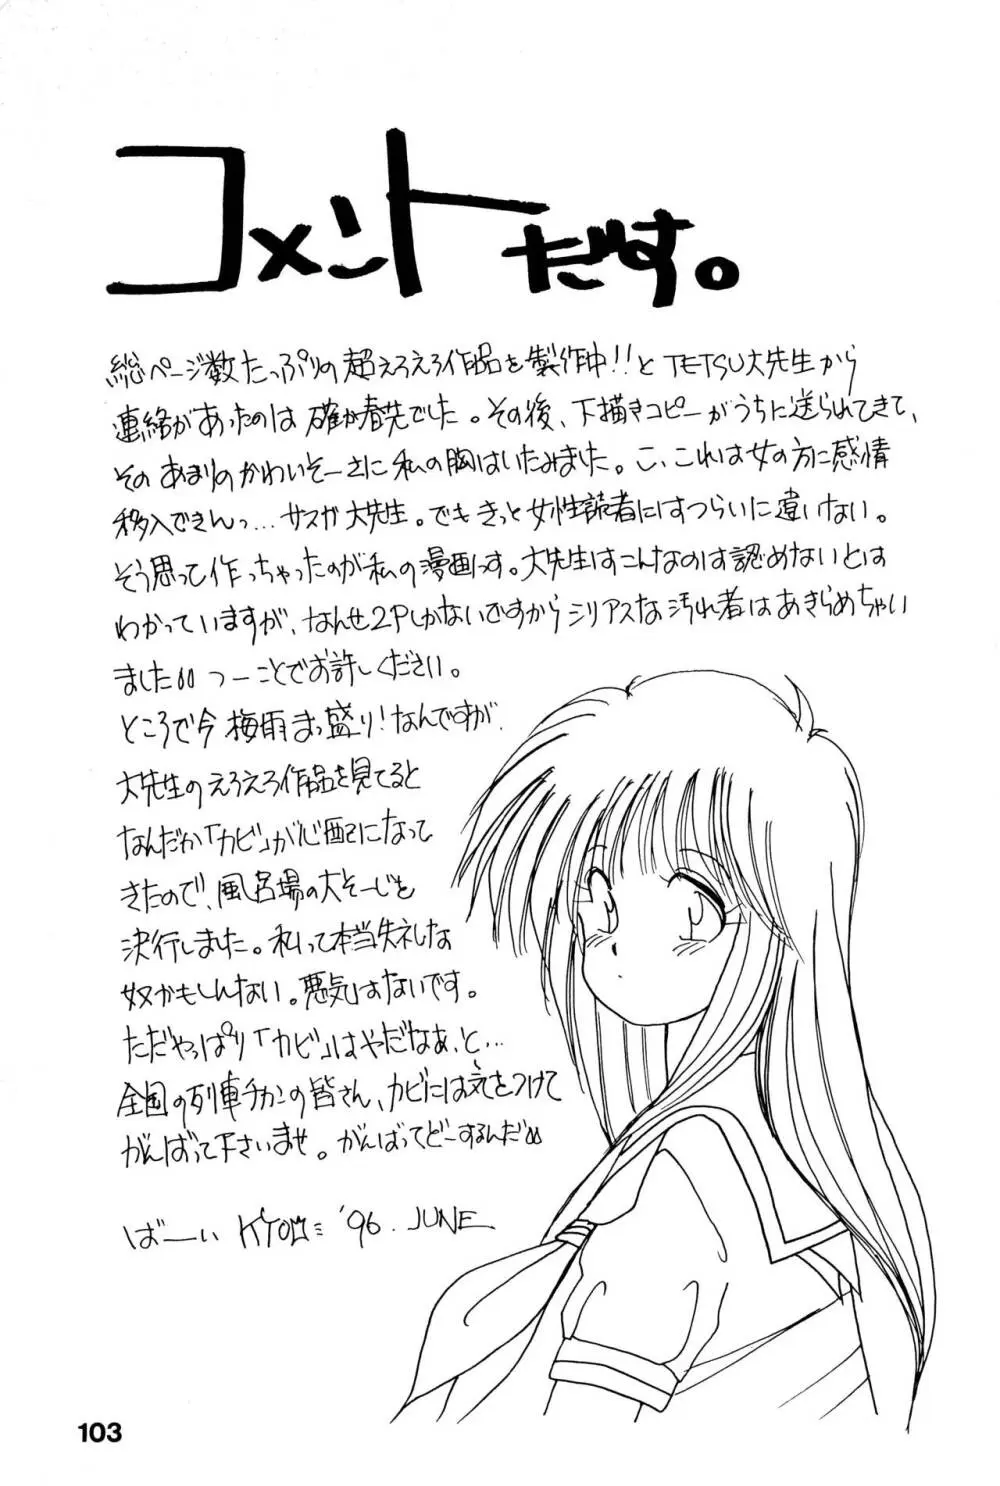 コメントだす。
総ページ数たっぷりの超えろえろ作品を製作中!!とTETSU大先生から
連絡があったのは確か春先でした。その後、下描きコピーがうちに送られてきて、
そのあまりのかわいそーさに私の胸はいたみました。こ、これは女の方に感情
移入できんっ…サスガ大先生。でもきっと女性読者にはつらいに違いない。
そう思って作っちゃったのが私の漫画っす。大先生はこんなのは認めないとは
わかっていますが、なんせ2Pしかないですからシリアスな汚れ者はあきらめちゃい
ました つーことでお許しください。
ところで今梅雨まっ盛り!なんですが、
大先生のえろえろ作品を見てると
なんだか「カビ」が心配になって
きたので、風呂場の大そーじを
決行しました。私って本当失ネしな
奴かもしんない。悪気はないです。
ただやっぱり「カビ」はやだなぁ、と…
全国の列車チカンの皆さん、カビには気をつけて
がんばって下さいませ。がんばってどーするんだ
ばーい '96. JUNE
103